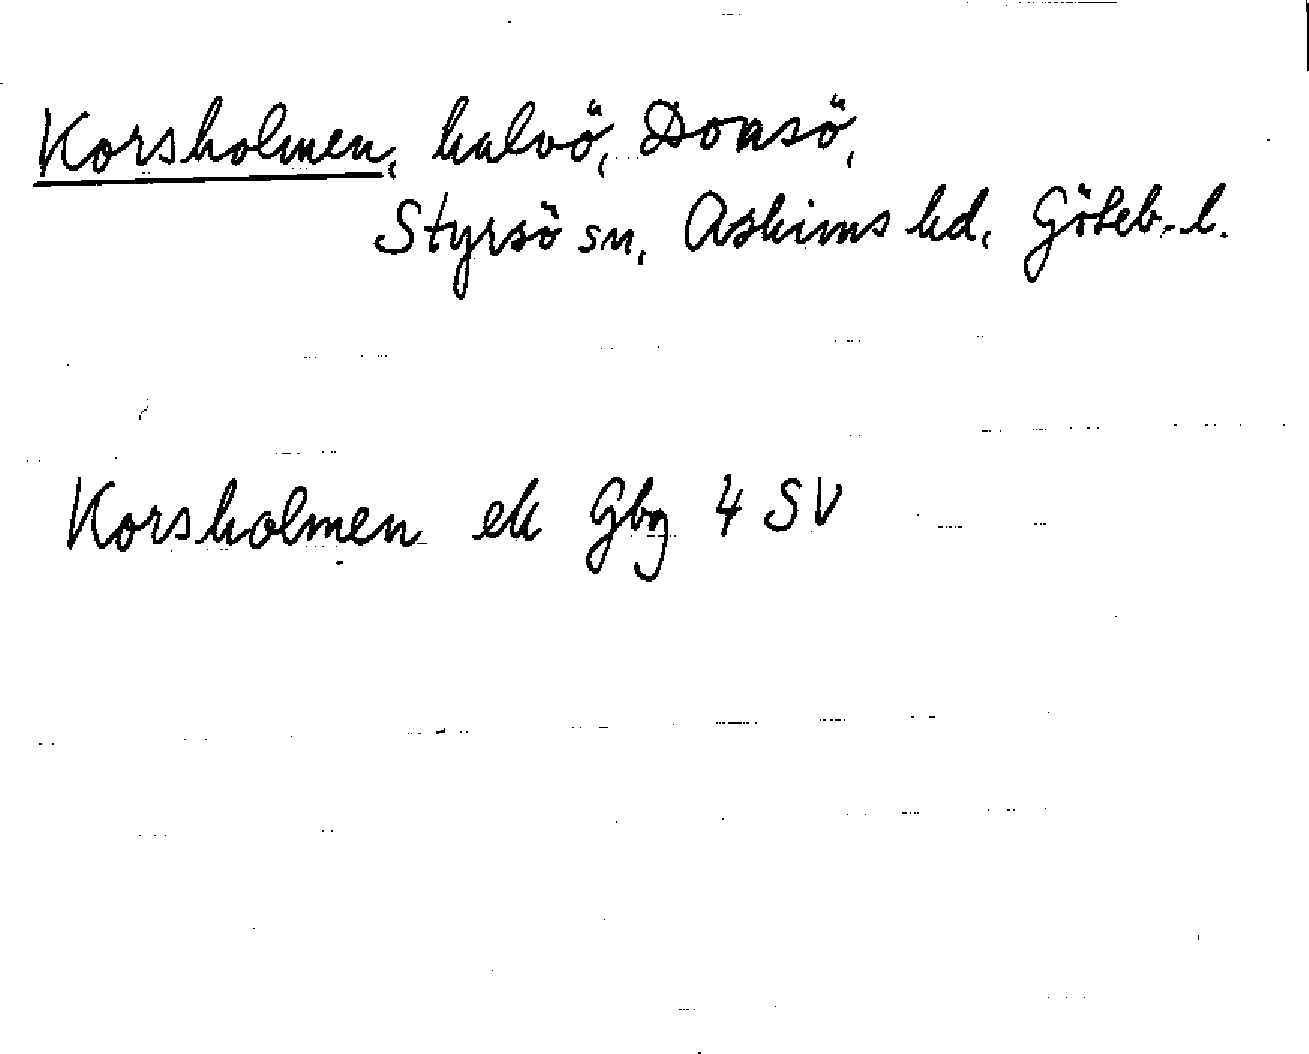 Korsholmen, halvö, Donsö,
Styrsö sn, Askims hd, Göteb. l.
Korsholmen ek Gbg 4 SV